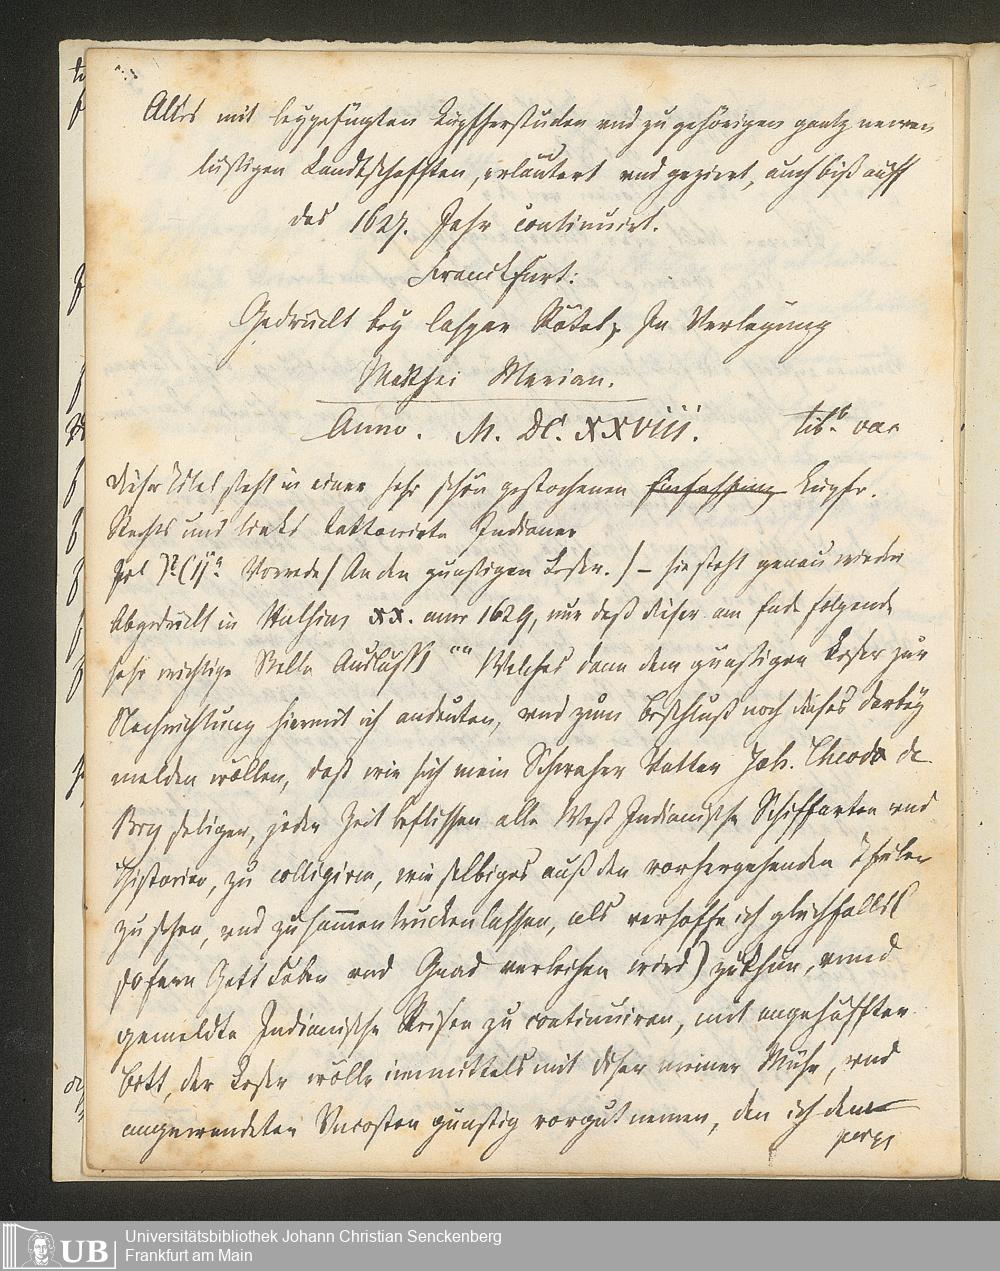 Alles mit beygefügten Kupfferstucken vnd zu gehörigen gantz newen
lustigen Landtschafften, erläutert vnd geziert, auch biß auff
das 1627. Jahr continuirt.
Franckfurt:
Gedruckt bey Caspar Rötel, In Verlegung
Matthei Merian.
Anno. M. DC. XXVIII.
Dieser Titel steht in einer sehr schön gestochenen Einfassung Kupfr.
Rechts und links tattowirte Indianer
Vorrede (An den günstigen Leser.) – sie steht genau wieder
Abgedruckt in XX. anno 1629, nur daß dieser am Ende folgende
sehr wichtige Stelle Ausläßt "" Welches dann dem günstigen Leser zur
Nachrichtung hiermit ich andeuten, vnd zum Beschluß noch dieses darbey
melden wöllen, daß wie sich mein Schwäher Vatter Joh. Theodo de
Bry seliger, jeder Zeit beflissen alle West Indianische Schiffarten vnd
Historien, zu colligiren, wie selbiges auß den vorhergehenden Theilen
zu sehen, vnd zusammen trucken lassen, als verhoffe ich gleichfalls (
sofern Gott Leben vnd Gnad verleihen wird) zuthun, vnnd
gemeldte Indianische Reisen zu continuiren, mit angehäfften
Bitt, der Leser wölle immittels mit diser meiner Mühe, vnd
angewendeten Vncosten günstig vorgut nemen, den ich dem
Universitätsbibliothek Johann Christian Senckenberg
Frankfurt am Main
UB